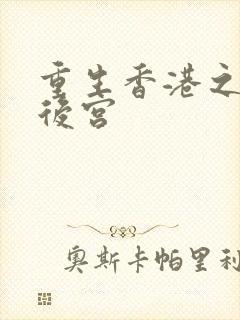 重生香港之
後宮
奥斯卡帕里利